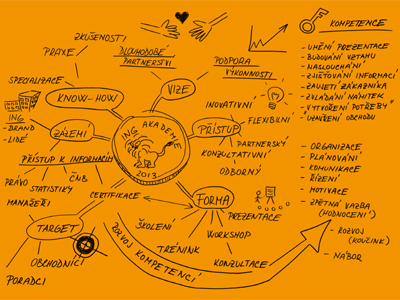 ZKUŠENOSTI
PRAXE
DLOUHODOBÉ
PARTNERSTVÍ
PODPORA
VÝKONNOSTI
KOMPETENCE
SPECIALIZACE
KNOW-HOW
VIZE
ING
- BRAND
- LIDÉ
ZÁZEMÍ
ING AKADEMIE
2013
INOVATIVNÍ
FLEXIBILNÍ
PŘÍSTUP
PARTNERSKÝ
KONZULTATIVNÍ
ODBORNÝ
- UMĚNÍ PREZENTACE
- BUDOVÁNÍ VZTAHU
- NASLOUCHÁNÍ
- ZJIŠŤOVÁNÍ INFORMACÍ
- ZAUJETÍ ZÁKAZNÍKA
- ZVLÁDÁNÍ NÁMITEK
- "VYTVOŘENÍ POTŘEBY"
- "UZAVŘENÍ OBCHODU"
PŘÍSTUP K INFORMACÍM
PRÁVO
STATISTIKY
ČNB
MANAŽEŘI
CERTIFIKACE
TARGET
OBCHODNÍCI
PORADCI
FORMA
PREZENTACE
ŠKOLENÍ
WORKSHOP
TRÉNINK
KONZULTACE
ROZVOJ KOMPETENCÍ
- ORGANIZACE
- PLÁNOVÁNÍ
- KOMUNIKACE
- ŘÍZENÍ
- MOTIVACE
- ZPĚTNÁ VAZBA
(HODNOCENÍ)
- ROZVOJ
(KOUČINK)
- NÁBOR